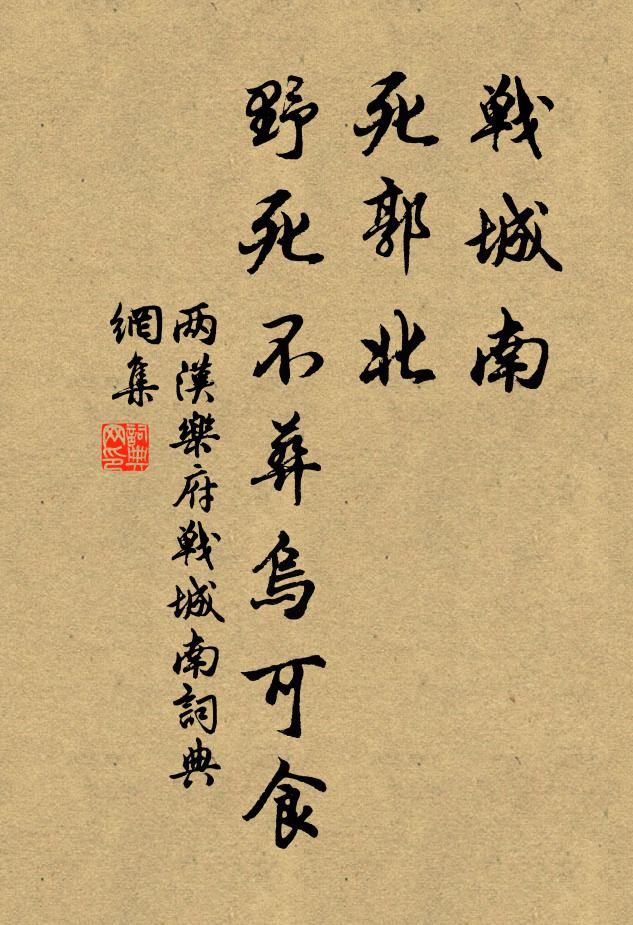 戦城南
死郭北
野死不葬烏可食
两漢樂府戦城南詞典
網集
詞典
网印